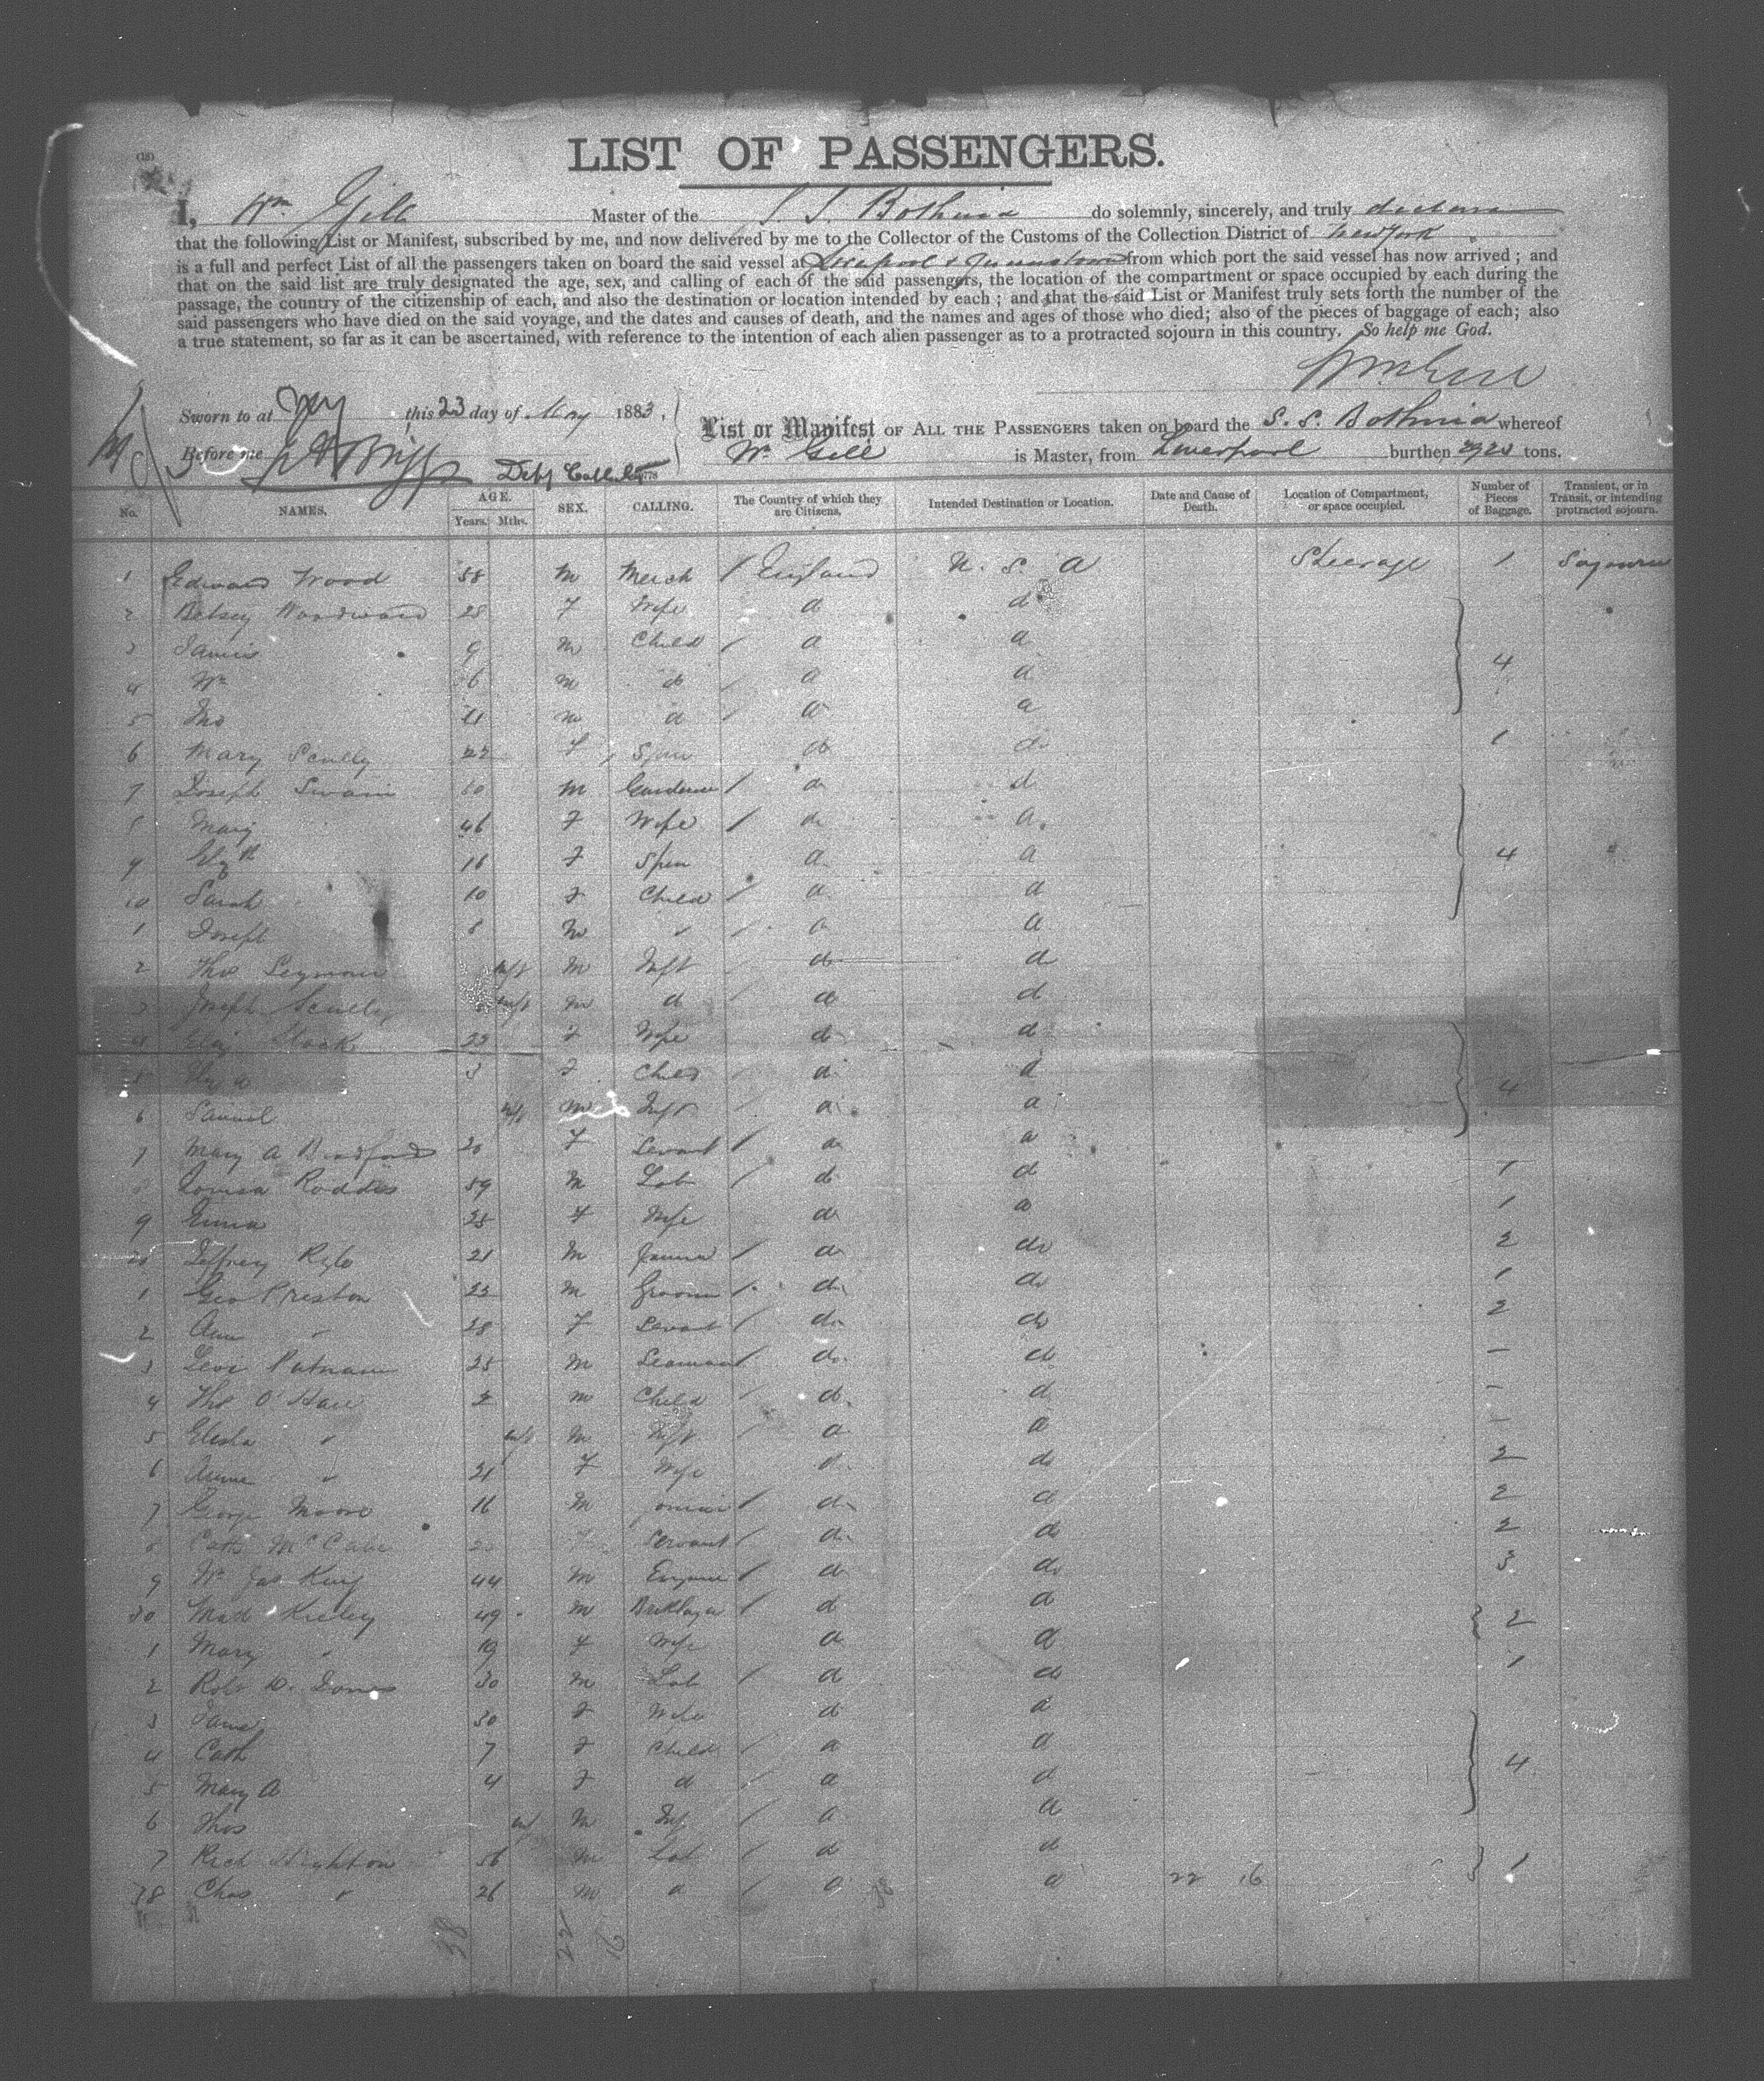 LIST OF PASSENGERS.
I, Wm Gill Master of the S S Bothnia do solemnly, sincerely, and truly declare
that the following List or Manifest, subscribed by me, and now delivered by me to the Collector of the Customs of the Collection District of New York
is a full and perfect List of all the passengers taken on board the said vessel at Liverpool & Queenstown from which port the said vessel has now arrived ; and
that on the said list are truly designated the age, sex, and calling of each of the said passengers, the location of the compartment or space occupied by each during the
passage, the country of the citizenship of each, and also the destination or location intended by each ; and that the said List or Manifest truly sets forth the number of the
said passengers who have died on the said voyage, and the dates and causes of death, and the names and ages of those who died; also of the pieces of baggage of each; also
a true statement, so far as it can be ascertained, with reference to the intention of each alien passenger as to a protracted sojourn in this country. So help me God.
Wm Gill
Sworn to at this 23 day of May 1883,
List or Manifest OF ALL THE PASSENGERS taken on board the S. S. Bothnia whereof
Before me Briggs Depy Collector
Wm Gill is Master, from Liverpool burthen tons.
No. NAMES. AGE. Years. Mths. SEX. CALLING. The Country of which they are Citizens. Intended Destination or Location. Date and Cause of Death. Location of Compartment, or space occupied. Number of Pieces of Baggage. Transient, or in Transit, or intending protracted sojourn.
1 Edward Wood 58 M Merch England U. S. A Steerage 1 Sojourn
2 Betsey Woodward 28 F Wife d d
3 James 9 M Child d d
4 Wm 6 M do d d 4
5 Jno 11 M d d d
6 Mary Scully 22 F Spin do do 1
7 Joseph Swain M Gardener d d
8 Mary 46 F Wife d d
9 Elizth 16 F Spin d d 4
10 Sarah 10 F Child d d
1 Joseph 8 M " d d
2 Thos Seymour inft M Inft d d
3 Joseph Scully inft M d d d
4 Eliz Stock 22 F Wife d d
5 3 F Child d d 4
6 Samuel inft M Inft d d
7 Mary A Bradford 20 F Servant d d
8 Louisa Roddis 59 M Lab d d 1
9 Emma 25 F Wife d d 1
20 Jeffrey Ryle 21 M d do 2
1 Geo Preston 23 M Groom do do 1
2 Ann " 28 F Servant do do 2
3 Levi Putnam 25 M Seaman do do —
4 Thos O'Hare 2 M Child do d —
5 " inft M Inft d d —
6 Annie " 21 F Wife d do 2
7 George Moore 16 M d d 2
8 Cath McCabe F Servant d do 2
9 Wm Jas King 44 M d do 3
30 Kieley 49 M Bricklayer d d 2
1 Mary " 19 F Wife d d
2 Robt D. Jones 30 M Lab d do 1
3 Jane 30 F Wife d d
4 Cath 7 F Child d d
5 Mary A 4 F d d d 4
6 Thos inf M Inf d d
7 Rich 56 M Lab d d 1
38 Chas " 26 M d d d 22 16
38 22 16